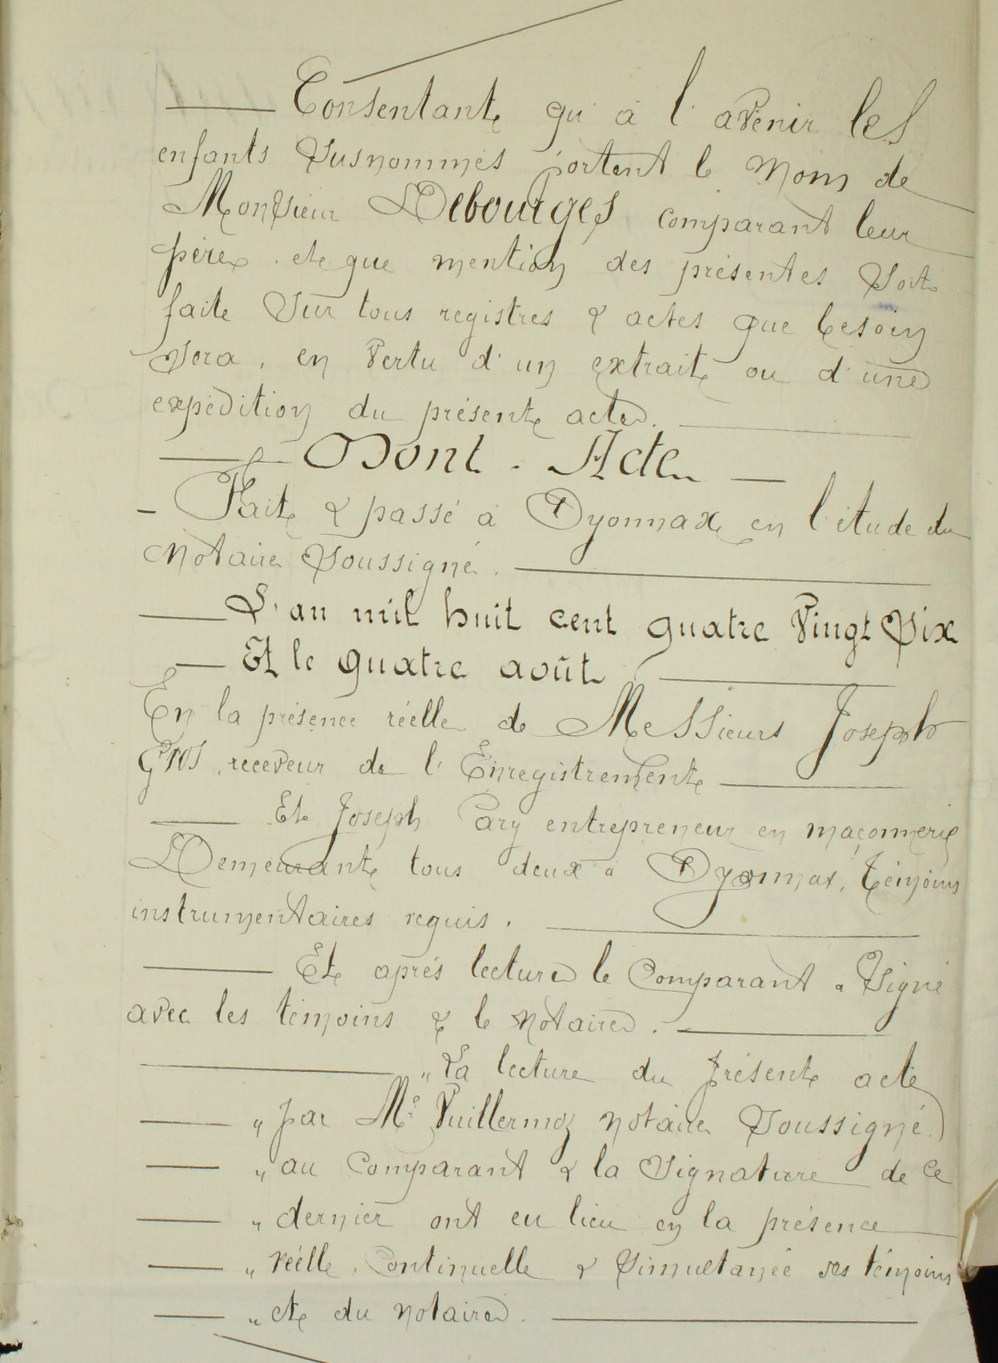 Consentant qu'à l'avenir les
enfants susnommés portent le nom de
Monsieur Debourges comparant leur
père, et que mention des présentes soit
faite sur tous registres & actes que besoin
sera, en vertu d'un extrait ou d'une
expédition du présent acte.
Dont Acte
Fait & passé à Oyonnax en l'étude du
notaire soussigné.
L'an mil huit cent quatre vingt six
Et le quatre août
En la présence réelle de Messieurs Joseph
Gros, receveur de l'Enregistrement
Et Joseph Pary entrepreneur en maçonnerie
Demeurant tous deux à Oyonnax, témoins
instrumentaires requis.
Et après lecture le comparant a signé
avec les témoins & le notaire.
„ La lecture du présent acte
„ par Me Vuillermoz notaire soussigné
„ au comparant & la signature de ce
„ dernier ont eu lieu en la présence
„ réelle, continuelle & simultanée des témoins
„ et du notaire.